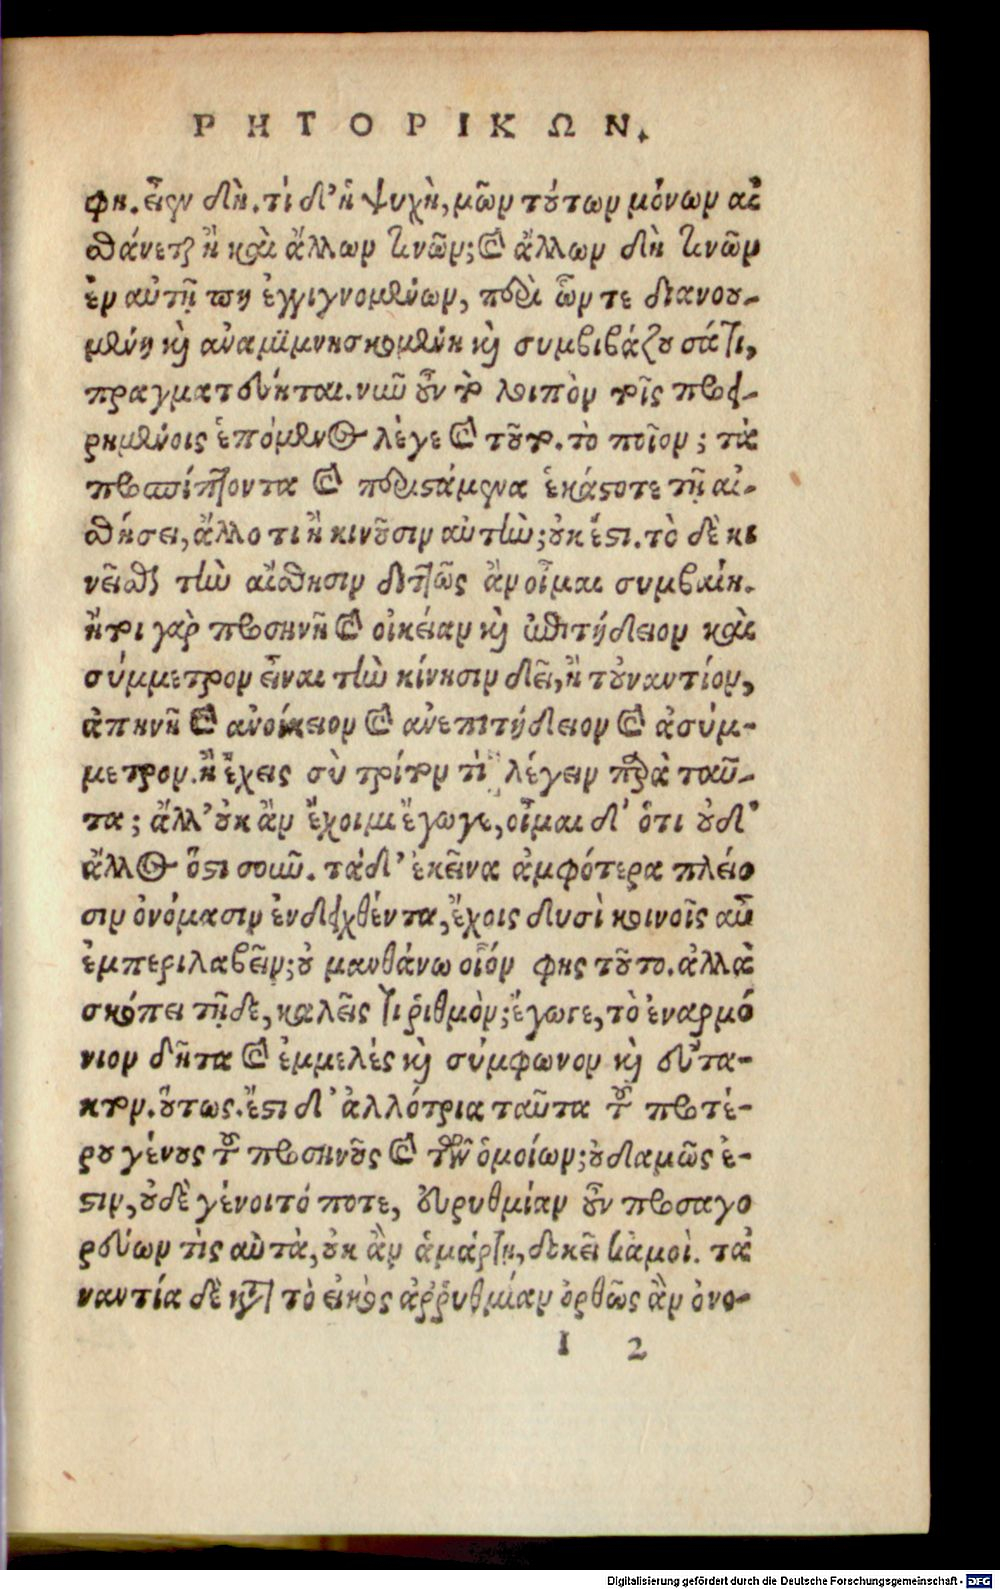 ΡΗΤΟΡΙΚΩΝ.
φη. εἶεν δὴ. τί δ' ἡ ψυχὴ, μῶν τούτων μόνων αἰ
σθάνεται ἢ καὶ ἄλλων τινῶν; καὶ ἄλλων δὴ τινῶν
ἐν αὐτῇ πῃ ἐγγιγνομένων, περὶ ὧν τε διανου-
μένη καὶ ἀναμιμνησκομένη καὶ συμβιβάζουσά τι,
πραγματεύηται. νῦν οὖν τὸ λοιπὸν τοῖς προει-
ρημένοις ἑπόμενος λέγε καὶ τοῦτο. τὸ ποῖον; τὰ
προσπίπτοντα καὶ περιστάμενα ἑκάστοτε τῇ αἰ-
σθήσει, ἄλλο τι ἢ κινοῦσιν αὐτὴν; οὐκ ἔστι. τὸ δὲ κι
νεῖσθαι τὴν αἴσθησιν διττῶς ἂν οἶμαι συμβαίη.
ἤτοι γὰρ προσηνῆ καὶ οἰκείαν καὶ ἐπιτήδειον καὶ
σύμμετρον εἶναι τὴν κίνησιν δεῖ, ἢ τοὐναντίον,
ἀπηνῆ καὶ ἀνοίκειον καὶ ἀνεπιτήδειον καὶ ἀσύμ-
μετρον. ἢ ἔχεις σὺ τρίτον τὶ λέγειν παρὰ ταῦ-
τα; ἀλλ' οὐκ ἂν ἔχοιμι ἔγωγε, οἶμαι δ' ὅτι οὐδ'
ἄλλος ὅστισοῦν. τά δ' ἐκεῖνα ἀμφότερα πλείο
σιν ὀνόμασιν ἐνδειχθέντα, ἔχοις δυσὶ κοινοῖς αὖ
ἐμπεριλαβεῖν; οὐ μανθάνω οἷόν φης τοῦτο. ἀλλὰ
σκόπει τῇδε, καλεῖς τι ῥιθμὸν; ἔγωγε, τὸ ἐναρμό
νιον δῆτα καὶ ἐμμελές καὶ σύμφωνον καὶ εὔτα-
κτον. οὕτως. ἔστι δ' ἀλλότρια ταῦτα τοῦ προτέ-
ρου γένους τοῦ προσηνοῦς καὶ τῶν ὁμοίων; οὐδαμῶς ἐ-
στιν, οὐδὲ γένοιτό ποτε, εὐρυθμίαν οὖν προσαγο
ρεύων τὶς αὐτὰ, οὐκ ἂν ἁμάρτῃ, δοκεῖ κἀμοὶ. τἀ
ναντία δὲ κατὰ τὸ εἰκὸς ἀῤῥυθμίαν ὀρθῶς ἂν ὀνο-
I 2
Digitalisierung gefördert durch die Deutsche Forschungsgemeinschaft - DFG